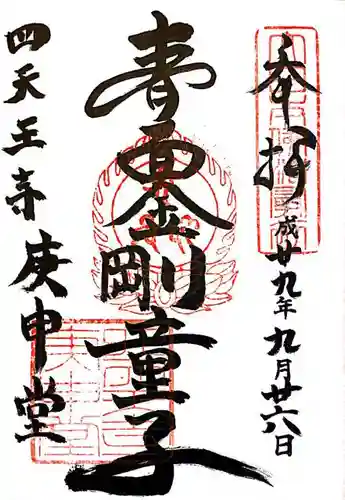 奉拝 平成廿九年九月廿六日
青面金剛童子
四天王寺庚申堂